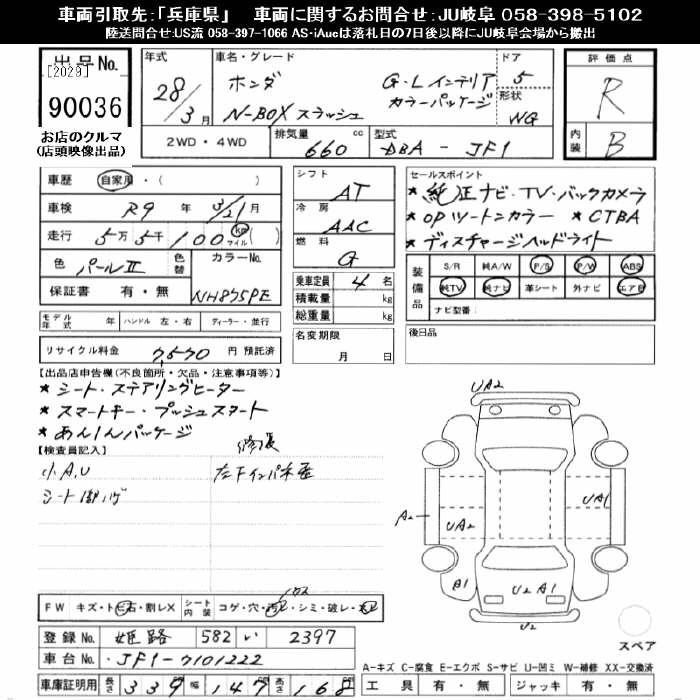 車両引取先:「兵庫県」 車両に関するお問合せ:JU岐阜 058-398-5102
陸送問合せ:US流 058-397-1066 AS-iAucは落札日の7日後以降にJU岐阜会場から搬出
出品No.
[2029]
90036
お店のクルマ
(店頭映像出品)
年式 車名・グレード ドア
28/3月 ホンダ G・Lインテリア 5
N-BOXスラッシュ カラーパッケージ 形状 WG
2WD・4WD 排気量 660 cc 型式 DBA-JF1
評価点
R
内装 B
車歴 自家用・( )
車検 R9年 3/21月
走行 5万5千100 km マイル ( )
色 パールⅡ 色替 カラーNo.
保証書 有・無 NH875PE
シフト AT
冷房 AAC
燃料 G
乗車定員 4名
積載量 kg
総重量 kg
セールスポイント
★純正ナビ・TV・バックカメラ
★OPツートンカラー ★CTBA
★ディスチャージヘッドライト
装備品 S/R 純A/W P/S P/W ABS
純TV 純ナビ 革シート 外ナビ エアB
ナビ型番:
モデル年式 年 ハンドル 左・右 ディーラー・並行
名変期限 月 日
後日品
リサイクル料金 7,570 円 預託済
【出品店申告欄(不良箇所・欠品・注意事項等)】
★シート・ステアリングヒーター
★スマートキー・プッシュスタート
★あんしんパッケージ
【検査員記入】
小A,U
左下インパネ歪
UA2
A2
UA2
UA1
B1
U2 A1
U2
FW キズ・トビ石・割レX シート内装 コゲ・穴・汚レ・シミ・破レ・
登録No. 姫路 582 い 2397
車台No. JF1-7101222
車庫証明用 長さ 339 幅 147 高さ 168
スペア
A-キズ C-腐食 E-エクボ S-サビ U-凹ミ W-補修 XX-交換済
工具 有・無 ジャッキ 有・無